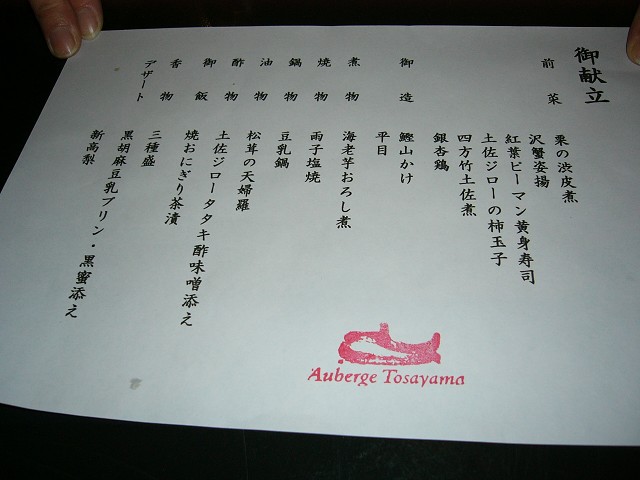 御献立
前菜
栗の渋皮煮
沢蟹姿揚
紅葉ピーマン黄身寿司
土佐ジローの柿玉子
四方竹土佐煮
銀杏鶏
御造
鰹山かけ
平目
煮物
海老芋おろし煮
焼物
雨子塩焼
鍋物
豆乳鍋
油物
松茸の天婦羅
酢物
土佐ジロータタキ酢味噌添え
御飯
焼おにぎり茶漬
香物
三種盛
デザート
黒胡麻豆乳プリン・黒蜜添え
新高梨
Auberge Tosayama